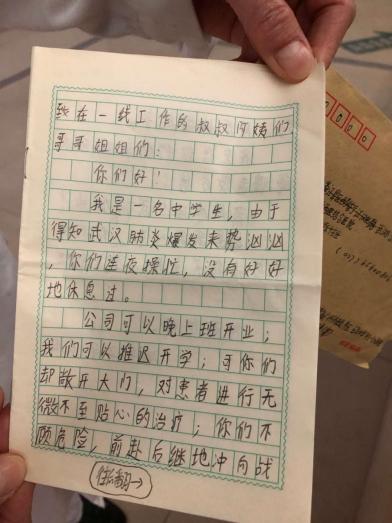 致在一线工作的叔叔阿姨们
哥哥姐姐们：
你们好！
我是一名中学生，由于
得知武汉肺炎爆发来势汹汹
，你们连夜操忙，没有好好
地休息过。
公司可以晚上班开业；
我们可以推迟开学；可你们
却敞开大门，对患者进行无
微不至贴心的治疗；你们不
顾危险，前赴后继地冲向战